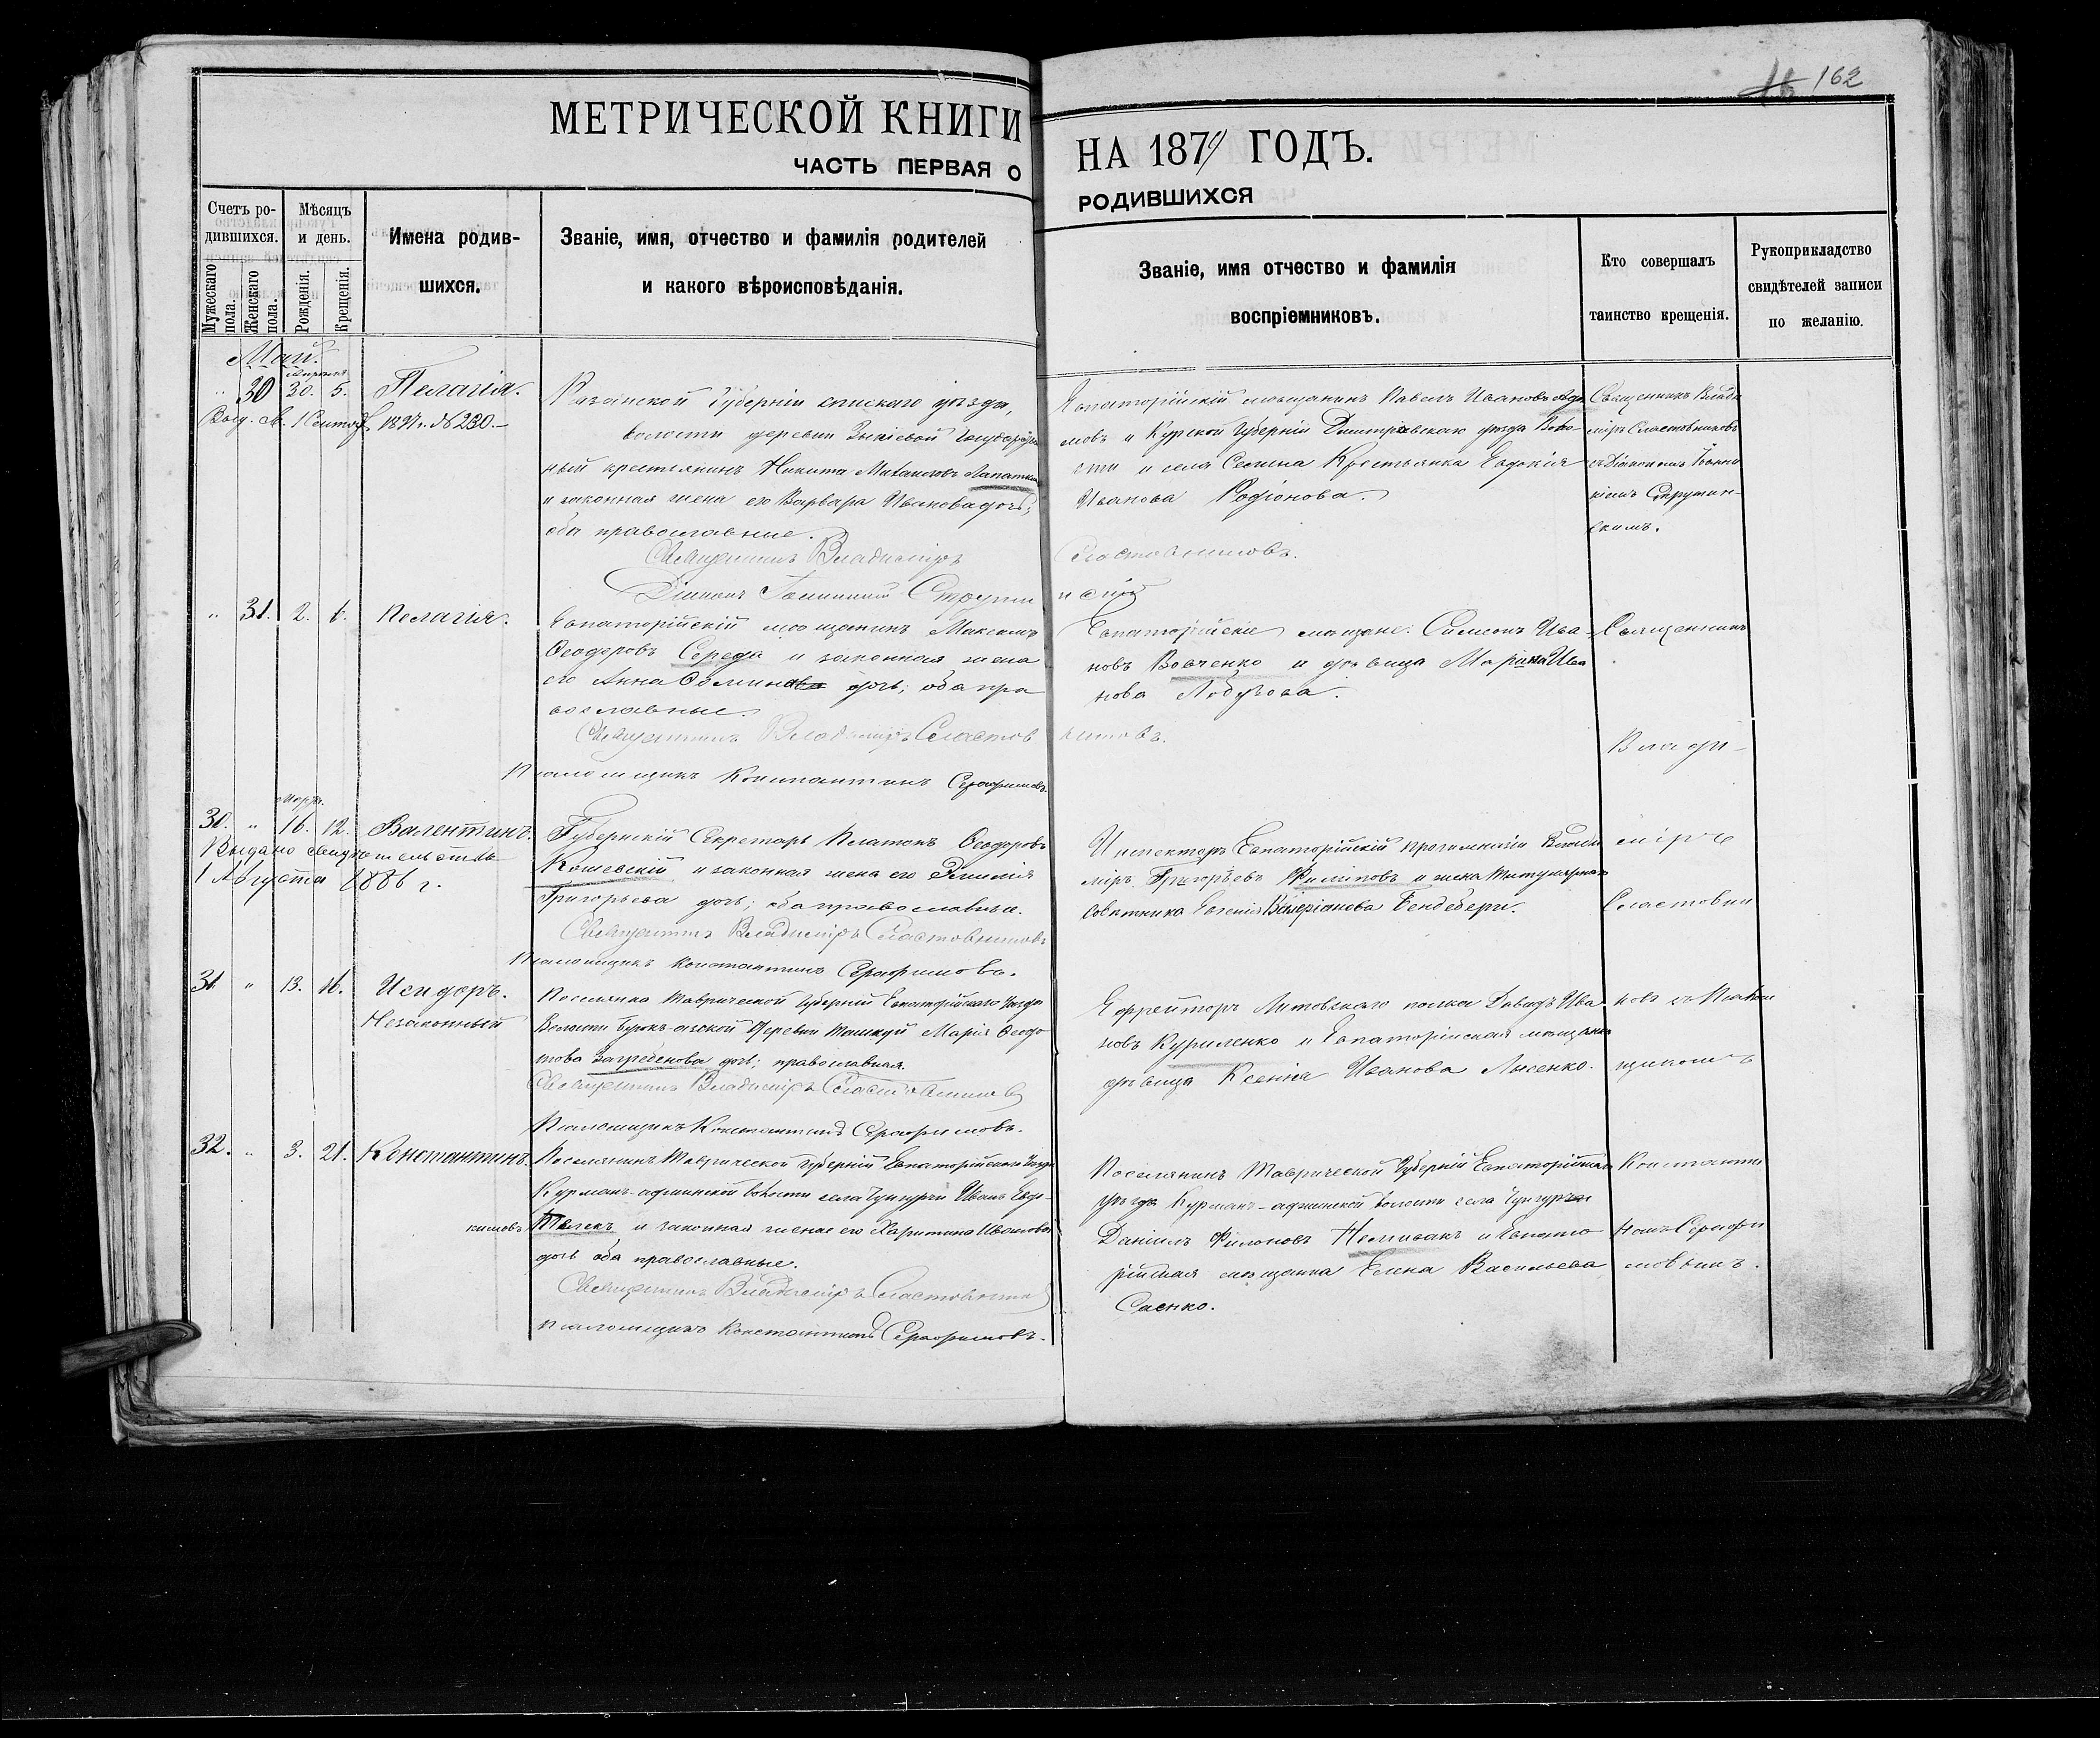 162
МЕТРИЧЕСКОЙ КНИГИ НА 1879 ГОДЪ.
ЧАСТЬ ПЕРВАЯ О РОДИВШИХСЯ
Счетъ ро-
дившихся.
Мужескаго пола.
Женскаго пола.
Мѣсяцъ
и день.
Рожденія.
Крещенія.
Имена родив-
шихся.
Званіе, имя, отчество и фамилія родителей
и какого вѣроисповѣданія.
Званіе, имя отчество и фамилія
воспріемниковъ.
Кто совершалъ
таинство крещенія.
Рукоприкладство
свидѣтелей записи
по желанію.
Май.
Апрѣля
" 30 30. 5. Пелагія.
1 Сентяб. № 230.
губерніи уѣзда,
волости деревни Государствен
ный крестьянинъ Никита Михаиловъ Лапаткинъ
и законная жена его Варвара Иванова дочь;
оба православные.
Священникъ Владиміръ Сластовниковъ.
Діаконъ Струтинскій
Евпаторійскій мѣщанинъ Павелъ Ивановъ
мовъ и Курской губерніи Дмитріевскаго уѣзда Воло-
сти и села Крестьянка Евдокія
Иванова Родіонова.
Священникъ Влади
міръ Сластовниковъ
съ Діакономъ Іоанни
кіемъ Струтин-
скимъ.
" 31. 2. 6. Пелагія.
Евпаторійскій мѣщанинъ Максимъ
Ѳеодоровъ Середа и законная жена
его Анна дочь; оба пра
вославные.
Священникъ Владиміръ Сластовниковъ.
Псаломщикъ Константинъ Серафимовъ.
Евпаторійскіе мѣщане: Симеонъ Ива-
новъ Вовченко и дѣвица Марина Ива
нова
Священникъ
Влади-
Марта.
30. " 16. 12. Валентинъ.
Выдано свидѣтельство
1 Августа 1886 г.
Губернскій Секретарь Платонъ Ѳеодоровъ
Кошевскій и законная жена его
Григорьева дочь; оба православные.
Священникъ Владиміръ Сластовниковъ
Псаломщикъ Константинъ Серафимовъ.
Инспекторъ Евпаторійскій прогимназіи Влади
міръ Григорьевъ Филиповъ и жена Титулярнаго
Совѣтника Евгенія Валеріанова Бендебери.
міръ
Сластовни
31 " 13. 16. Исидоръ.
Незаконный
Поселянка Таврической губерніи Евпаторійскаго уѣзда
Волости деревни Ташкуй Марія Ѳеодо
това Загребенова дочь; православная.
Священникъ Владиміръ Сластовниковъ
Псаломщикъ Константинъ Серафимовъ.
Ефрейторъ Литовскаго полка Давидъ Ива
новъ Куриленко и Евпаторійская мѣщанка
дѣвица Ксенія Иванова Лысенко.
ковъ съ Псалом
щикомъ
32. " 3. 21. Константинъ.
Поселянинъ Таврической губерніи Евпаторійскаго уѣзда
Курманъ-аджинской волости села Иванъ Евдо-
кимовъ и законная жена его Харитина Иванова
дочь оба православные.
Священникъ Владиміръ Сластовниковъ
Псаломщикъ Константинъ Серафимовъ.
Поселянинъ Таврической губерніи Евпаторійскаго
уѣзда Курманъ-аджинской волости села
Даніилъ Филоновъ и Евпато
рійская мѣщанка Елена Васильева
Саенко.
Константи
номъ Серафи
мовымъ.